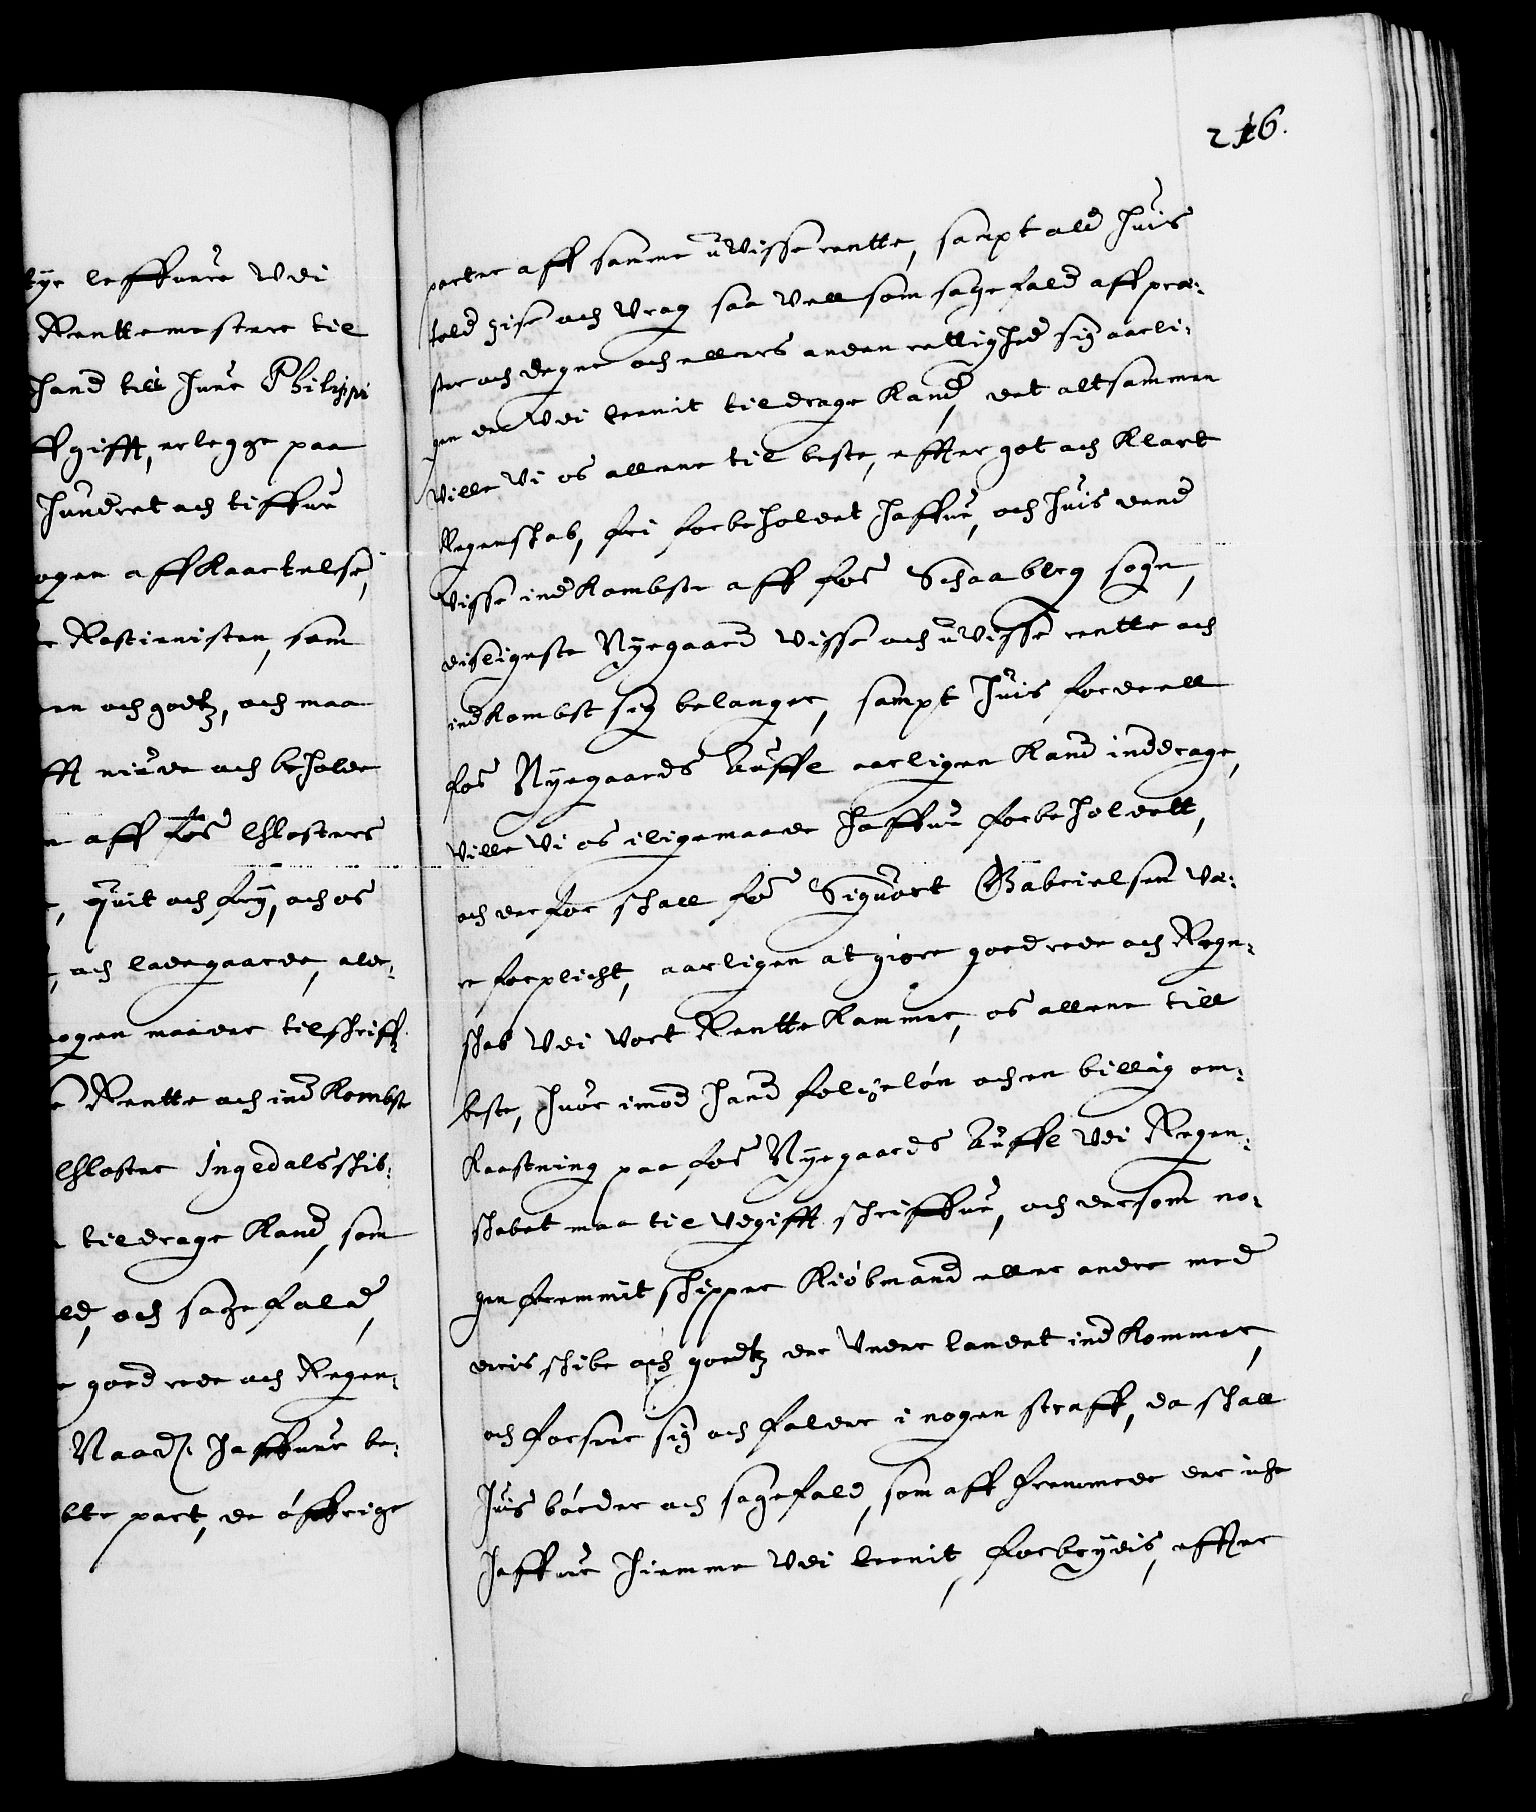 tye leffuere Vdi
Renttemestere til
hand till huer Philippi
fgifft, erlegge paa
hundret och tiffue
ogen affkaartelse,
Restantzen, som
en och godtz, och maa
fft niude och beholde
n aff fos Chlosters
, quit och frÿ, och os
, och ladegaarde, alde-
nogen maader tilschriff-
e Rentte och indkombst
Chloster Ingedals schib-
tildrage kand, som
ld, och sagefald,
e goed rede och Regen-
Naads. haffuer be-
bte part, de öffrige
216.
parter aff samme uvisse rentte, sampt ald huis
told zise och vrag saa vell som sagefald aff præ-
ster och degne och ellers anden rettighed sig aarli-
gen der Vdi leenit tildrage kand, det altsammen
ville Vi os allene til beste, effter got och klart
Regenschab, fri forbeholdet haffue, och huis dend
visse indkombst aff fos Schaaberg sogn,
disligeste Nyegaard visse och uvisse rentte och
indkombst sig belanger, sampt huis fordeell
fos Nyegaards Auffl aarligen kand inddrage,
ville Vi os iligemaade haffue forbeholdett,
och derfor schall fos Siguort Gabrielsen væ-
re forplicht, aarligen at giøre goed rede och Regn-
schab Vdi Vort Renttekammer, os allene till
beste, huor imod hand folcheløn och en billig om-
kaastning paa fos Nyegaards Auffl Vdi Regen-
schabet maa til Vdgifft schriffue, och dersom no-
gen fremmit schipper kiøbmand eller andre med
deris schibe och goedtz der Under landet indkommer,
och forseer sig och falder i nogen straff, da schall
huis bøeder och sagefald, som aff fremmede der iche
haffuer hiemme Vdi leenit, forbrydis, effter